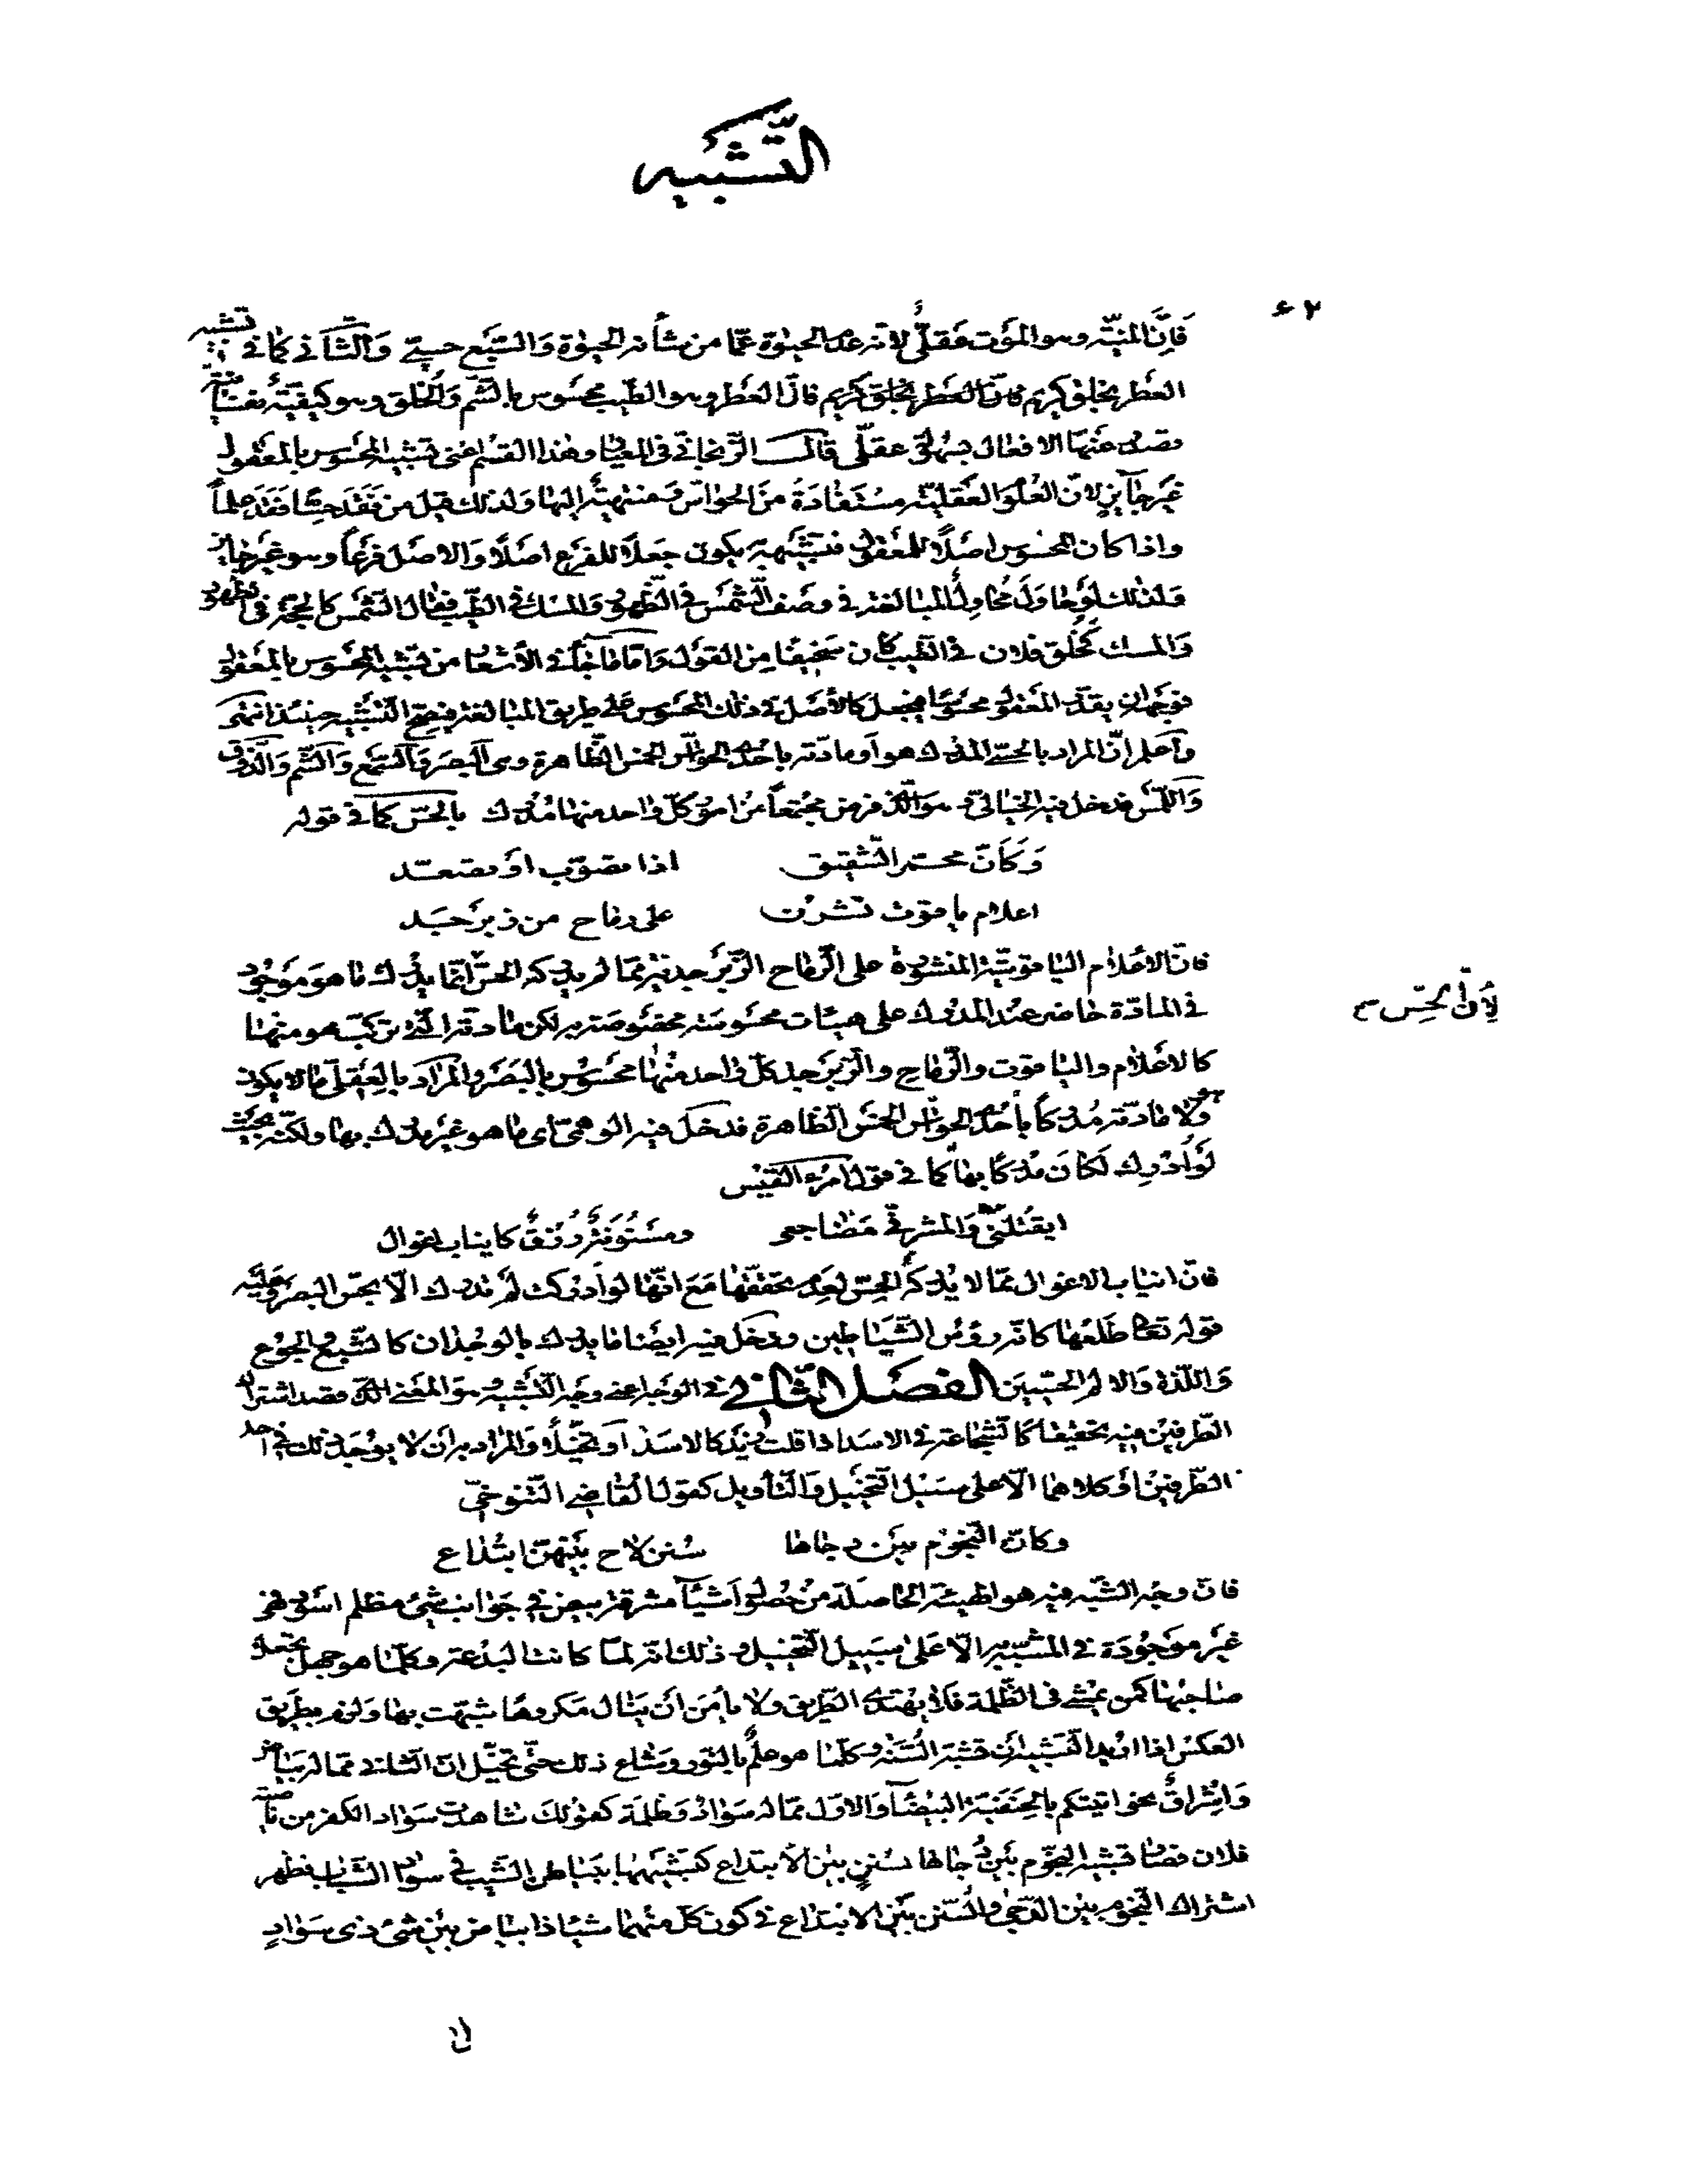 التَّشبيه
۶۲
فَإِنَّ المنيّة وهو المَوت عَقليٌّ لانّه عدم الحيٰوة عمّا من شأنه الحيٰوة وَالسّبَع حسيّ وَالثّاني كما في تشبيه
العطر بخلق كريم فانّ العَطر بخلق كريم فانّ العَطر وهو الطّيب محسُوس بالشّم وَالخلق وهو كيفيّة نفسانيّة
تصدر عنهَا الافعال بسهولة عقلّى قال الزّنجانّي في المعيار وهٰذا القسم اعنى تشبيه المحسُوس بالمعقول
غير جآيز لانّ العُلوم العَقليّة مستَفادَة منَ الحواسّ ومنتهيَة إليها ولذلك قيل من فَقَدَ حِسًّا فَقَدَ عِلماً
واذا كان المحسُوس اصلًا للمعقول فتشبيهه به يكون جَعلًا للفرع اصلًا وَالاصل فرعاً وهو غير جايز
وَلذٰلك لَو حاوَلَ مُحاوِلٌ المبالغة في وصف الشّمس في الظّهور وَالمسك في الطّيب فقال الشّمس كالحجّة في الظّهور
وَالمسك كَخُلق فلان في الطّيب كان سَخيفًا مِن القَول وَامّا ما جآء في الاَشعار من تشبيه المحسُوس بالمعقول
فوجهه ان يقدّر المعقول محسُوسًا ويجعل كالأصل في ذلك المحسُوس على طريق المبالغة فيصحّ التّشبيه حينئذ انتهى
وَاعلم انّ المراد بالحسّي المدرك هو اَو مادّته باحدى الحواسّ الخمس الظّاهرة وهي البَصَر وَالسّمع وَالشّم وَالذّوق
وَاللّمس فدخل فيه الخيالّي وهو الّذي فرض مجتمعاً من امور كلّ واحد منها مُدرك بالحسّ كما في قوله
وَكَانّ محمر الشّقيق اذا تصوّب او تصعّد
اعلام ياقوت نشرن على رماح من زبرجَد
فانّ الاَعلام الياقوتيّة المنشورة على الرّماح الزّبرجديّة ممّا لم يدركه الحسّ انّما يدرك ما هو مَوجود
لِأنّ الحِسّ
في المادّة حاضر عند المدرك على هيئات محسُوسة مخصُوصة به لكن مادّته الّتي تركّب هو منها
كالاعلام والياقوت والرّماح والزّبرجد كلّ واحد منها محسُوس بالبَصَر والمراد بالعقلّى ما لا يكون
هو ولا مادّته مُدركاً باحدى الحواسّ الخمس الظّاهرة فدخل فيه الوهمّى اى ما هو غير مدرك بها ولكنّه بحيث
لَو اُدرِك لَكانَ مدركاً بها كما في قول امرء القَيس
ايقتلنى وَالمشرفّي مضاجعى ومسنونة زرق كانياب اغوال
فانّ انياب الاغوال ممّا لا يُدركه الحسّ لعدم تحقّقها مَعَ انّها لو اُدركت لم تدرك الّا بحسّ البصر وعليه
قوله تعالى طَلعُها كانّه رؤسُ الشّيَاطين ودخل فيه ايضا ما يدرك بالوجدان كالشّبع والجوع
وَاللّذة وَالالم الحسّيين الفصَل الثّاني في الوجه اعنى وجه التّشبيه هو المعنى الّذى قصد اشتراك
الطّرفين فيه تحقيقا كالشّجاعة في الاسد اذا قلت زيد كالاسد اَو تخيّلًا وَالمراد به ان لا يوجد ذلك في احد
الطّرفين اَو كلاهما الّا على سبيل التّخييل وَالتّأويل كقول القاضي التّنوخيّ
وكانّ النّجوم بين دجاها سُنن لاح بينهنّ ابتداع
فانّ وجه الشّبه فيه هو الهيئة الحاصلة من حصُول اَشيَآء مشرقة بيض في جوانب شئ مظلم اسود فهى
غير موجُودة في المشبّه به الّا على سبيل التّخييل وذلك انّه لمّا كانت البدعة وكلّما هو جهل تجعل
صاحبها كمن يمشى في الظّلمة فلا يهتدى الطّريق ولا يأمن اَن ينال مكروهًا شبّهت بها ولزم بطريق
العكس اذا اريد التّشبيه اَن تشبّه السّنّة وكلّما هو علمٌ بالنّور وشاع ذلك حتّى تخيّل انّ الثّاني ممّا له بياض
وَاشراقٌ نحو اتيتكم بالحنفيّة البيضآء وَالاوّل ممّا له سواد وظلمة كقولك شاهدت سواد الكفر من ناصية
فلان فصار تشبيه النّجوم بين دجاها بسُننٍ بين الابتداع كتشبيهها ببياض الشّيب في سواد الشّباب فظهر
اشتراك النّجوم بين الدّجى والسّنن بَين الابتداع في كون كلّ منهما شيئا ذا بياض بين شئ ذى سَوادٍ